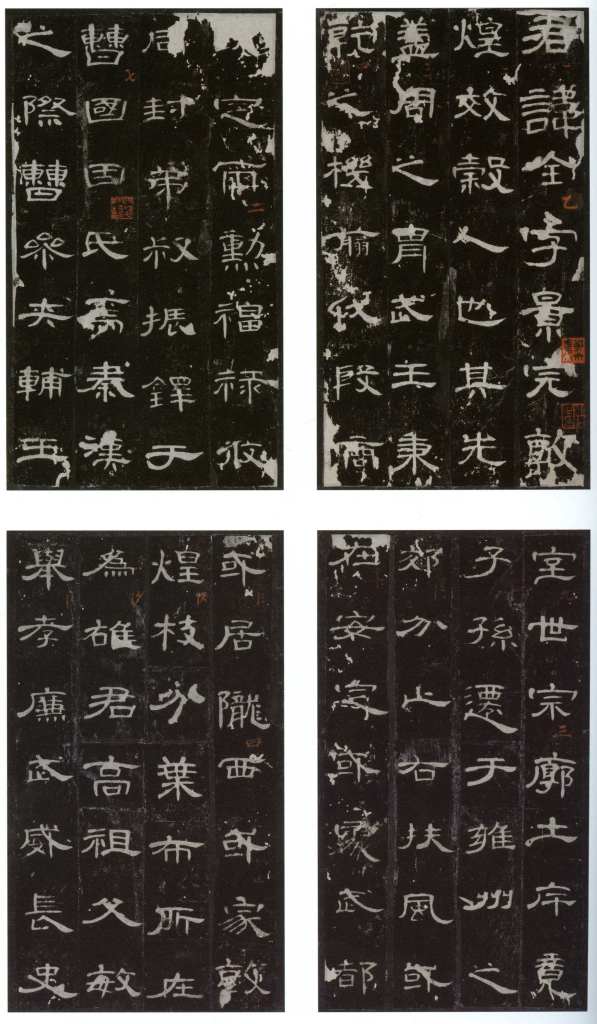 君諱全字景完敦
煌效穀人也其先
蓋周之胄武王秉
乾之機翦伐殷商
定爾勳福祿攸
同封弟叔振鐸于
曹國因氏焉秦漢
之際曹參夾輔王
室世宗廓土斥竟
子孫遷于雍州之
郊分止右扶風或
在安定或處武都
或居隴西或家敦
煌枝分葉布所在
為雄君高祖父敏
舉孝廉武威長史